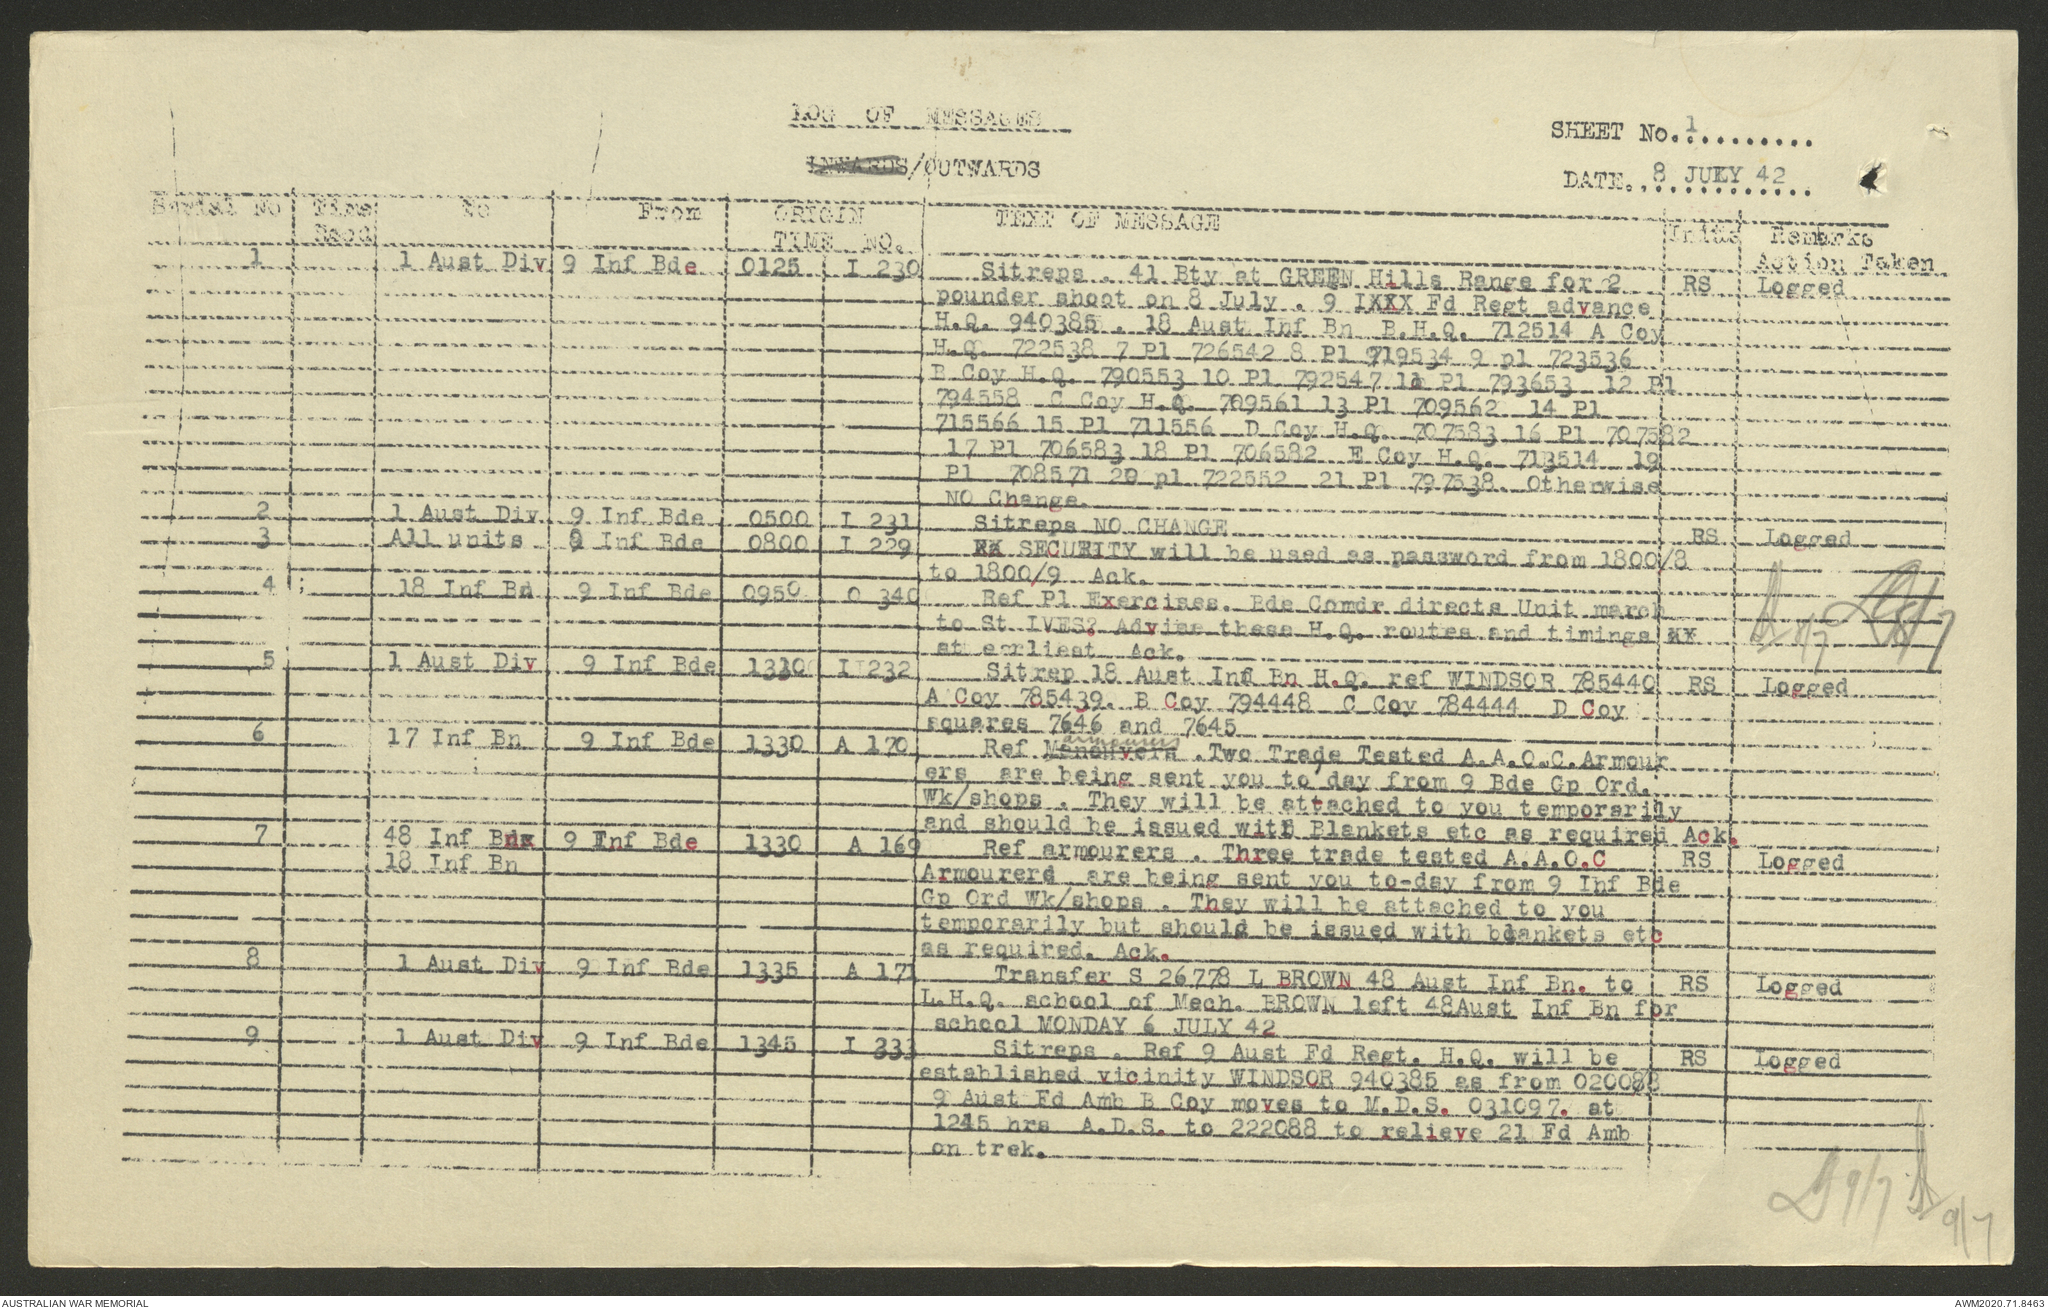 LOG OF MESSAGES
SHEET No. 1
INWARDS/OUTWARDS
DATE.. 8 JULY 42
Serial No Time Recd To From ORIGIN TIME NO. TEXT OF MESSAGE Inits Remarks Action Taken
1 1 Aust Div 9 Inf Bde 0125 I 230 Sitreps . 41 Bty at GREEN Hills Range for 2 RS Logged
pounder shoot on 8 July . 9 IXXX Fd Regt advance
H.Q. 940385 . 18 Aust Inf Bn B.H.Q. 712514 A Coy
H.Q. 722538 7 Pl 726542 8 Pl 719534 9 pl 723536
B Coy H.Q. 790553 10 Pl 792547 11 Pl 793653 12 Pl
794558 C Coy H.Q. 709561 13 Pl 709562 14 Pl
715566 15 Pl 711556 D Coy H.Q. 707583 16 Pl 707582
17 Pl 706583 18 Pl 706582 E Coy H.Q. 713514 19
Pl 708571 20 pl 722552 21 Pl 797538. Otherwise
NO Change.
2 1 Aust Div 9 Inf Bde 0500 I 231 Sitreps NO CHANGE RS Logged
3 All units 9 Inf Bde 0800 I 229 XX SECURITY will be used as password from 1800/8
to 1800/9 Ack.
4 18 Inf Bn 9 Inf Bde 0950 O 340 Ref Pl Exercises. Bde Comdr directs Unit march
to St IVES? Advise these H.Q. routes and timings xx
at earliest Ack.
5 1 Aust Div 9 Inf Bde 1310 I 232 Sitrep 18 Aust Inf Bn H.Q. ref WINDSOR 785440 RS Logged
A Coy 785439. B Coy 794448 C Coy 784444 D Coy
squares 7646 and 7645
6 17 Inf Bn 9 Inf Bde 1330 A 170 Ref Maneuvers armourers .Two Trade Tested A.A.O.C.Armour
ers are being sent you to day from 9 Bde Gp Ord.
Wk/shops . They will be attached to you temporarily
and should be issued with Blankets etc as required Ack.
7 48 Inf Bnx 9 Inf Bde 1330 A 169 Ref armourers . Three trade tested A.A.O.C RS Logged
18 Inf Bn Armourerd are being sent you to-day from 9 Inf Bde
Gp Ord Wk/shops . They will be attached to you
temporarily but should be issued with blankets etc
as required. Ack.
8 1 Aust Div 9 Inf Bde 1335 A 171 Transfer S 26778 L BROWN 48 Aust Inf Bn. to RS Logged
L.H.Q. school of Mech. BROWN left 48Aust Inf Bn for
school MONDAY 6 JULY 42
9 1 Aust Div 9 Inf Bde 1345 I 333 Sitreps . Ref 9 Aust Fd Regt. H.Q. will be RS Logged
established vicinity WINDSOR 940385 as from 020088
9 Aust Fd Amb B Coy moves to M.D.S. 031097. at
1245 hrs A.D.S. to 222088 to relieve 21 Fd Amb
on trek.
9/7
9/7
AUSTRALIAN WAR MEMORIAL
AWM2020.71.8463